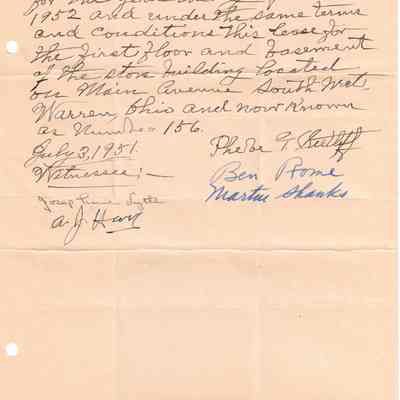 for the
1952 and under the same terms
and Conditions This Lease for
the first floor and basement
of the store building located
on Main Avenue South West,
Warren, Ohio and now Known
as Number 156.
July 3, 1951.
Witnesses; -
Phebe T.
Ben Rome
Martin Shanks
Josephine Lytle
A. J.